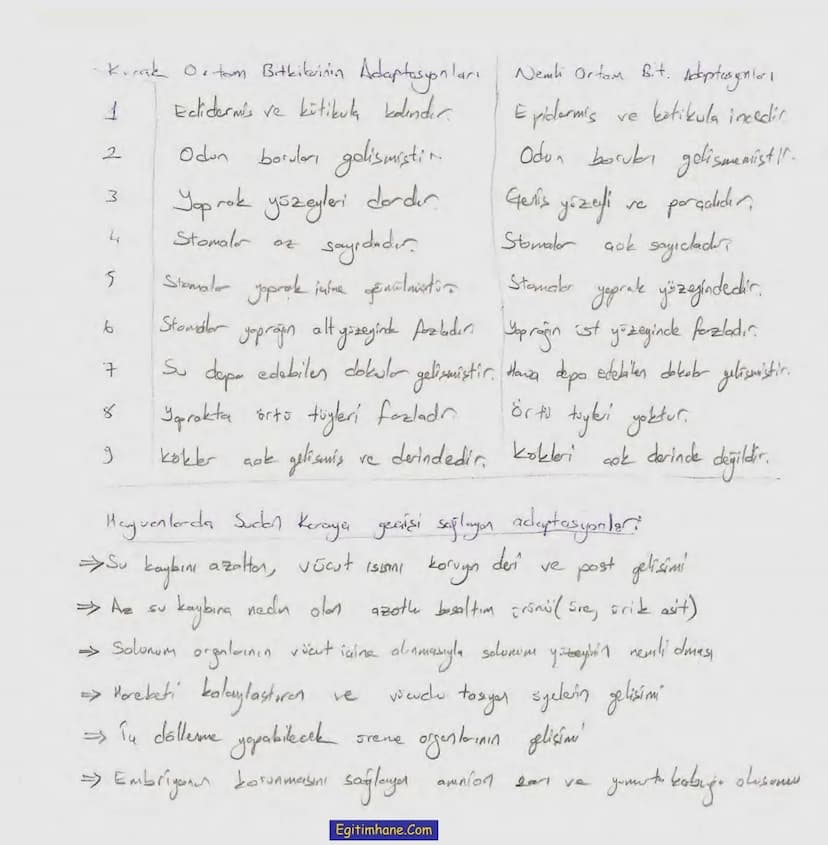 Kurak Ortam Bitkilerinin Adaptasyonları Nemli Ortam Bit. Adaptasyonları
1 Epidermis ve kütikula kalındır. Epidermis ve kütikula incedir.
2 Odun boruları gelişmiştir. Odun boruları gelişmemiştir.
3 Yaprak yüzeyleri dardır. Geniş yüzeyli ve parçalıdır.
4 Stomalar az sayıdadır. Stomalar çok sayıdadır.
5 Stomalar yaprak içine gömülmüştür. Stomalar yaprak yüzeyindedir.
6 Stomalar yaprağın alt yüzeyinde fazladır. Yaprağın üst yüzeyinde fazladır.
7 Su depo edebilen dokular gelişmiştir. Hava depo edebilen dokular gelişmiştir.
8 Yaprakta örtü tüyleri fazladır. Örtü tüyleri yoktur.
9 Kökler çok gelişmiş ve derindedir. Kökleri çok derinde değildir.
Hayvanlarda Sudan Karaya geçişi sağlayan adaptasyonlar:
⇒ Su kaybını azaltan, vücut ısısını koruyan deri ve post gelişimi
⇒ Az su kaybına neden olan azotlu boşaltım ürünü (üre, ürik asit)
⇒ Solunum organlarının vücut içine alınmasıyla solunum yüzeyinin nemli olması
⇒ Hareketi kolaylaştıran ve vücudu taşıyan üyelerin gelişimi
⇒ İç dölleme yapabilecek üreme organlarının gelişimi
⇒ Embriyonun korunmasını sağlayan amnion zarı ve yumurta kabuğu oluşumu
Egitimhane.Com